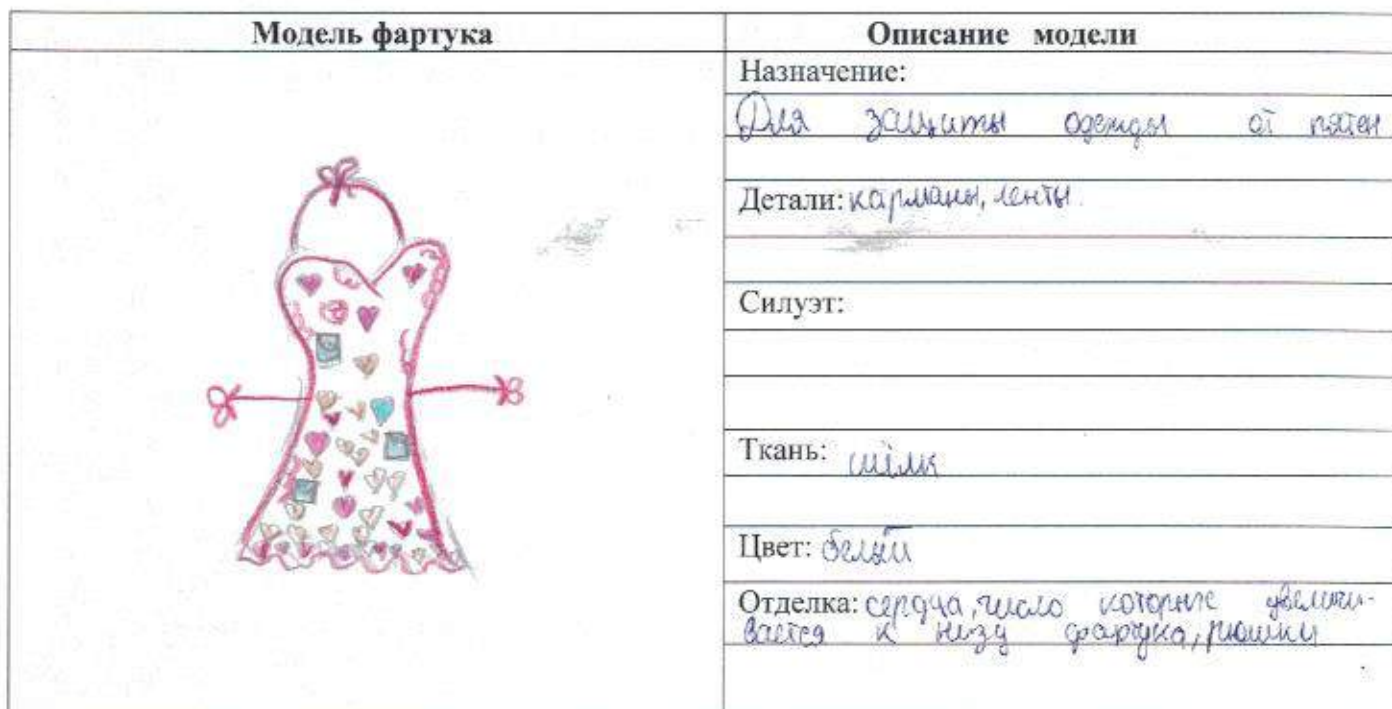 Модель фартука
Описание модели
Назначение:
Для защиты одежды от пятен
Детали: карманы, ленты.
Силуэт:
Ткань: шёлк
Цвет: белый
Отделка: сердца, число которые увеличи-
вается к низу фартука, рюшки